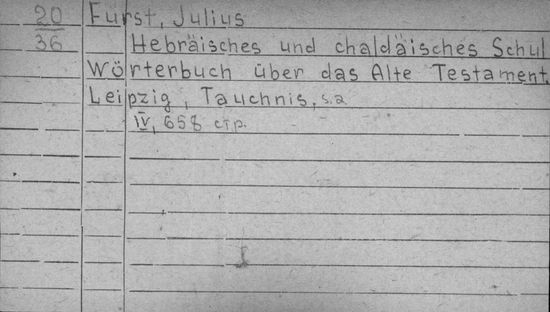 20 Fürst, Julius
36 Hebräisches und chaldäisches Schul
Wörterbuch über das Alte Testament,
Leipzig, Tauchnis, s.a
IV, 658 стр.